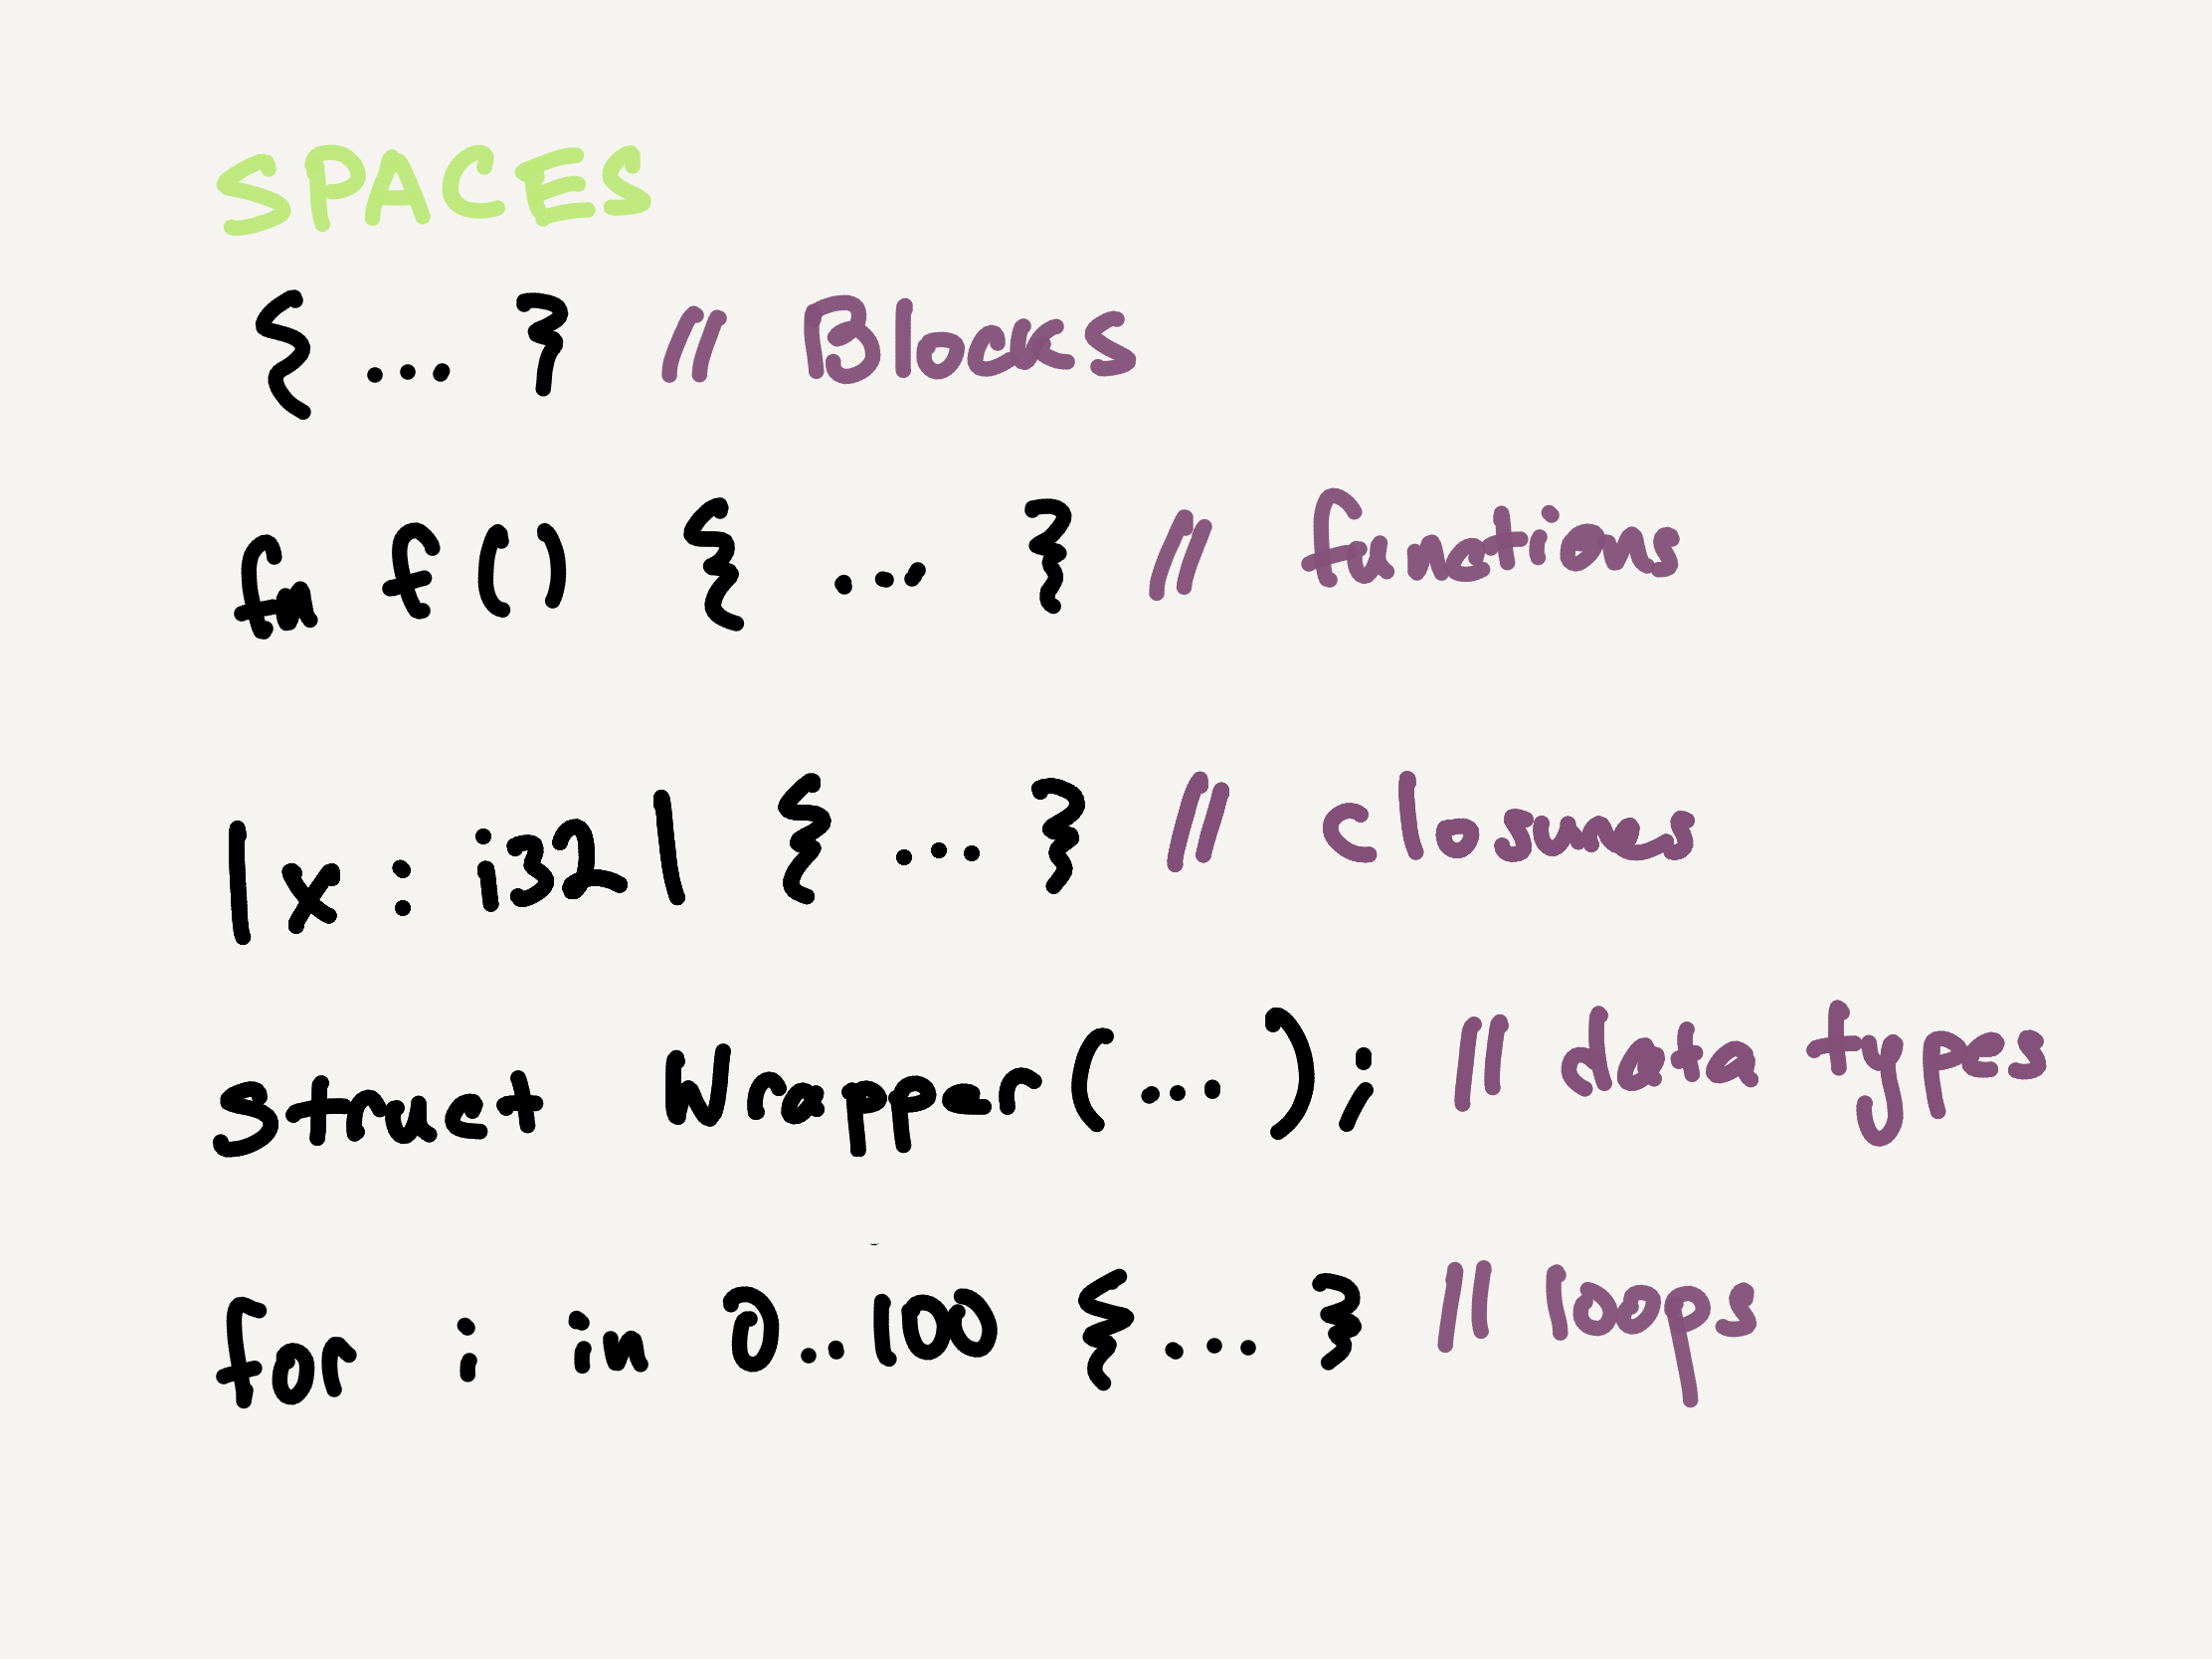 SPACES
{ ... } // Blocks
fn f() { ... } // functions
|x : i32| { ... } // closures
struct Wrapper( ... ); // data types
for i in 0..100 { ... } // loops